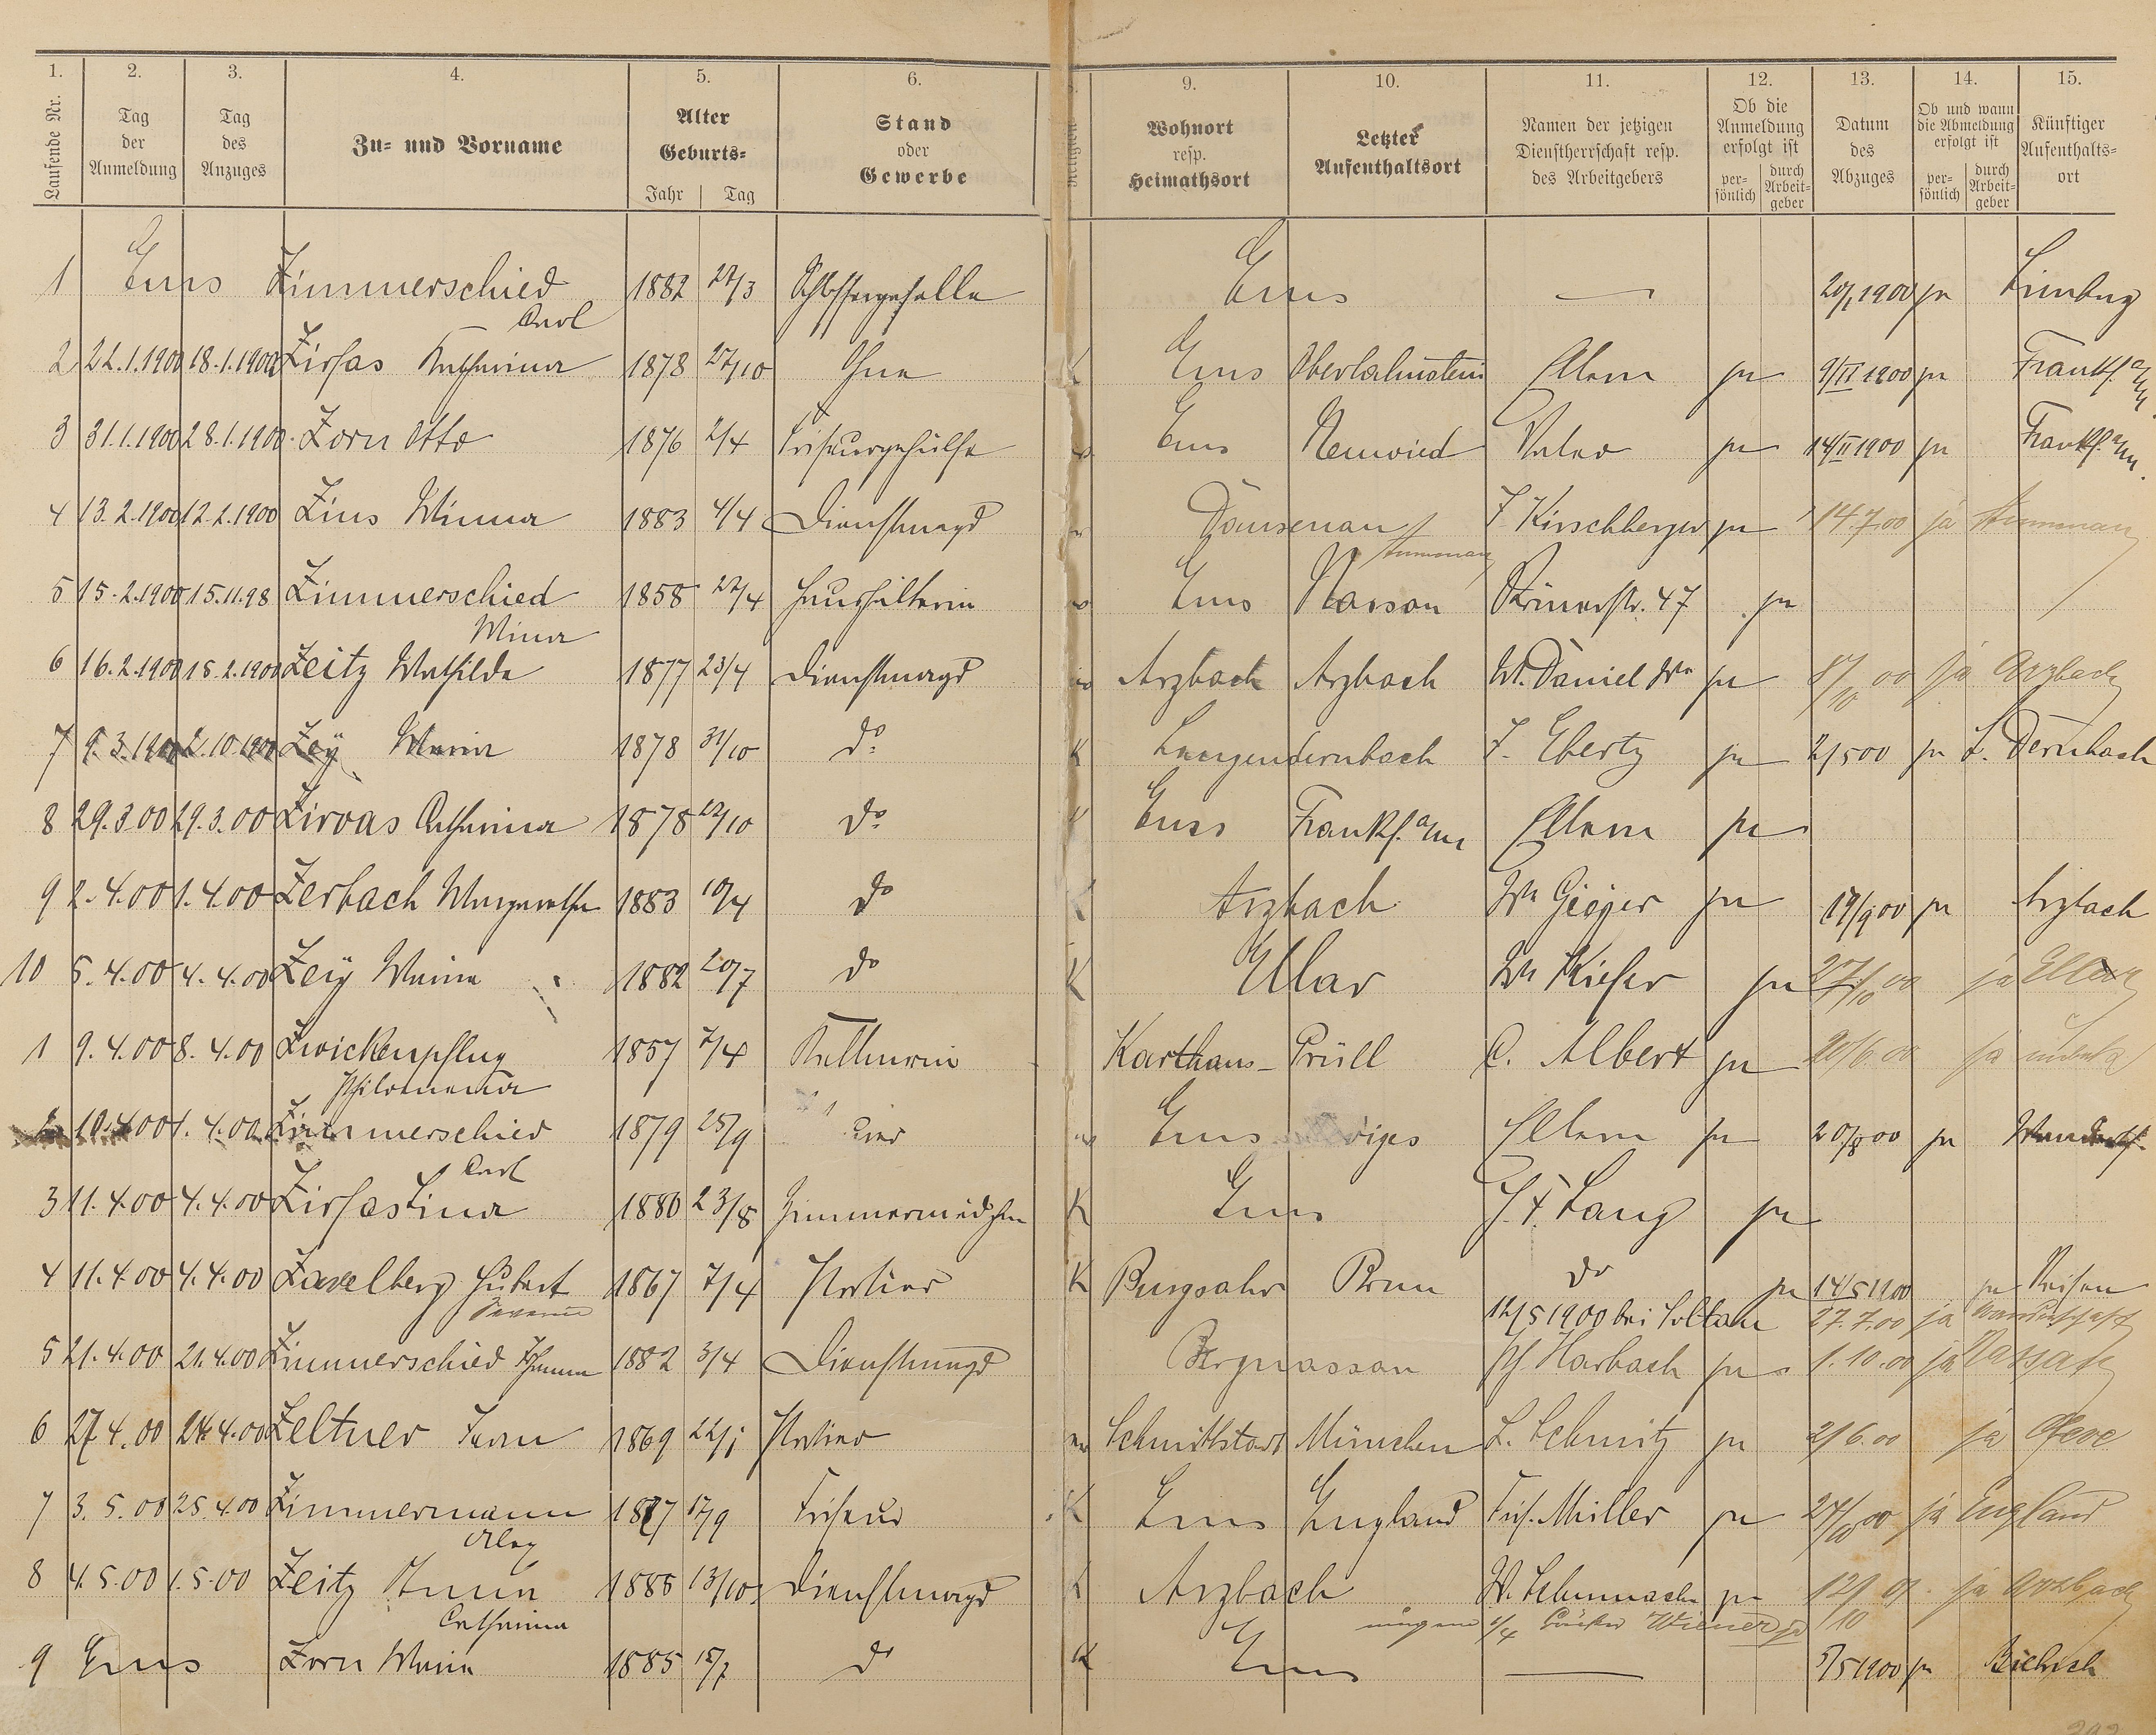 1. 2. 3. 4. 5. 6. 9. 10. 11. 12. 13. 14. 15.
Laufende Nr. Tag der Anmeldung Tag des Anzuges Zu- und Vorname Alter Geburts- Jahr Tag Stand oder Gewerbe Religion Wohnort resp. Heimathsort Letzter Aufenthaltsort Namen der jetzigen Dienstherrschaft resp. des Arbeitgebers Ob die Anmeldung erfolgt ist per- sönlich durch Arbeit- geber Datum des Abzuges Ob und wann die Abmeldung erfolgt ist per- sönlich durch Arbeit- geber Künftiger Aufenthalts- ort
1 Ems Zimmerschied 1882 22/3 Schlossergeselle Ems — 20/1 1900 ja Limburg
Carl
2 22.1.1900 18.1.1900 Zirfas Katharina 1878 27/10 Ohne K Ems Oberlahnstein Eltern ja 9/II 1900 ja Frankf. a/M.
3 31.1.1900 28.1.1900 Zorn Otto 1876 2/4 Friseurgehülfe Ems Neuwied Vater ja 14/II 1900 ja Frankf. a/M.
4 13.2.1900 12.2.1900 Zins Minna 1883 4/4 Dienstmagd Dausenau J. Kirschberger ja 14.7.00 ja
5 15.2.1900 15.11.98 Zimmerschied 1858 22/4 Haushälterin Ems Nassau Römerstr. 47 ja
Mina
6 16.2.1900 15.2.1900 Zeitz Mathilde 1877 23/4 Dienstmagd Arzbach Arzbach W. Daniel Ww ja 8/10 00 ja Arzbach
7 9.3.1900 2.10.1900 Zey Maria 1878 31/10 do K Langendernbach J. Ebertz ja 2/5 00 ja L. Dernbach
8 29.3.00 29.3.00 Zirvas Catharina 1878 /10 do Ems Frankf. a/M Eltern ja
9 2.4.00 1.4.00 Zerbach Margarethe 1883 10/4 do K Arzbach Ww Geiger ja 19/9 00 ja Arzbach
10 5.4.00 4.4.00 Zey Maria 1882 20/7 do K Ellar Ww Kiefer ja 27/10 00 ja Ellar
1 9.4.00 8.4.00 Zwickenpflug 1857 7/4 Kellnerin Karthaus-Prüll C. Albert ja 20/6.00 ja
Philomena
2 10.4.00 1.4.00 Zimmerschied 1879 25/9 Ems Eltern ja 20/8 00 ja
Carl
3 11.4.00 4.4.00 Zirfas Lina 1880 23/8 Zimmermädchen K Ems J. F. Lang ja
4 11.4.00 4.4.00 Zavelberg Hubert 1867 7/4 Portier K Burgsahr Bonn do ja 14/5 1900 ja Reisen
12/5 1900 bei Soltau 27.7.00 ja Wanderschaft
5 21.4.00 21.4.00 Zimmerschied Johanna 1882 3/4 Dienstmagd Bergnassau Ph. Harbach ja 1.10.00 ja Nassau
6 27.4.00 24.4.00 Zeltner Franz 1869 22/1 Portier München L. Schmitz ja 2/6.00 ja
7 3.5.00 25.4.00 Zimmermann 1877 17/9 Friseur K Ems England Fris. Müller ja 24/10 00 ja England
Alex
8 4.5.00 1.5.00 Zeitz Anna 1885 13/10 Dienstmagd K Arzbach W. Schumacher ja 12/10 ja Arzbach
Catharina 1/4 Wiener ja
9 Ems Zorn Maria 1885 15/7 do K Ems — 5/5 1900 ja Biebrich